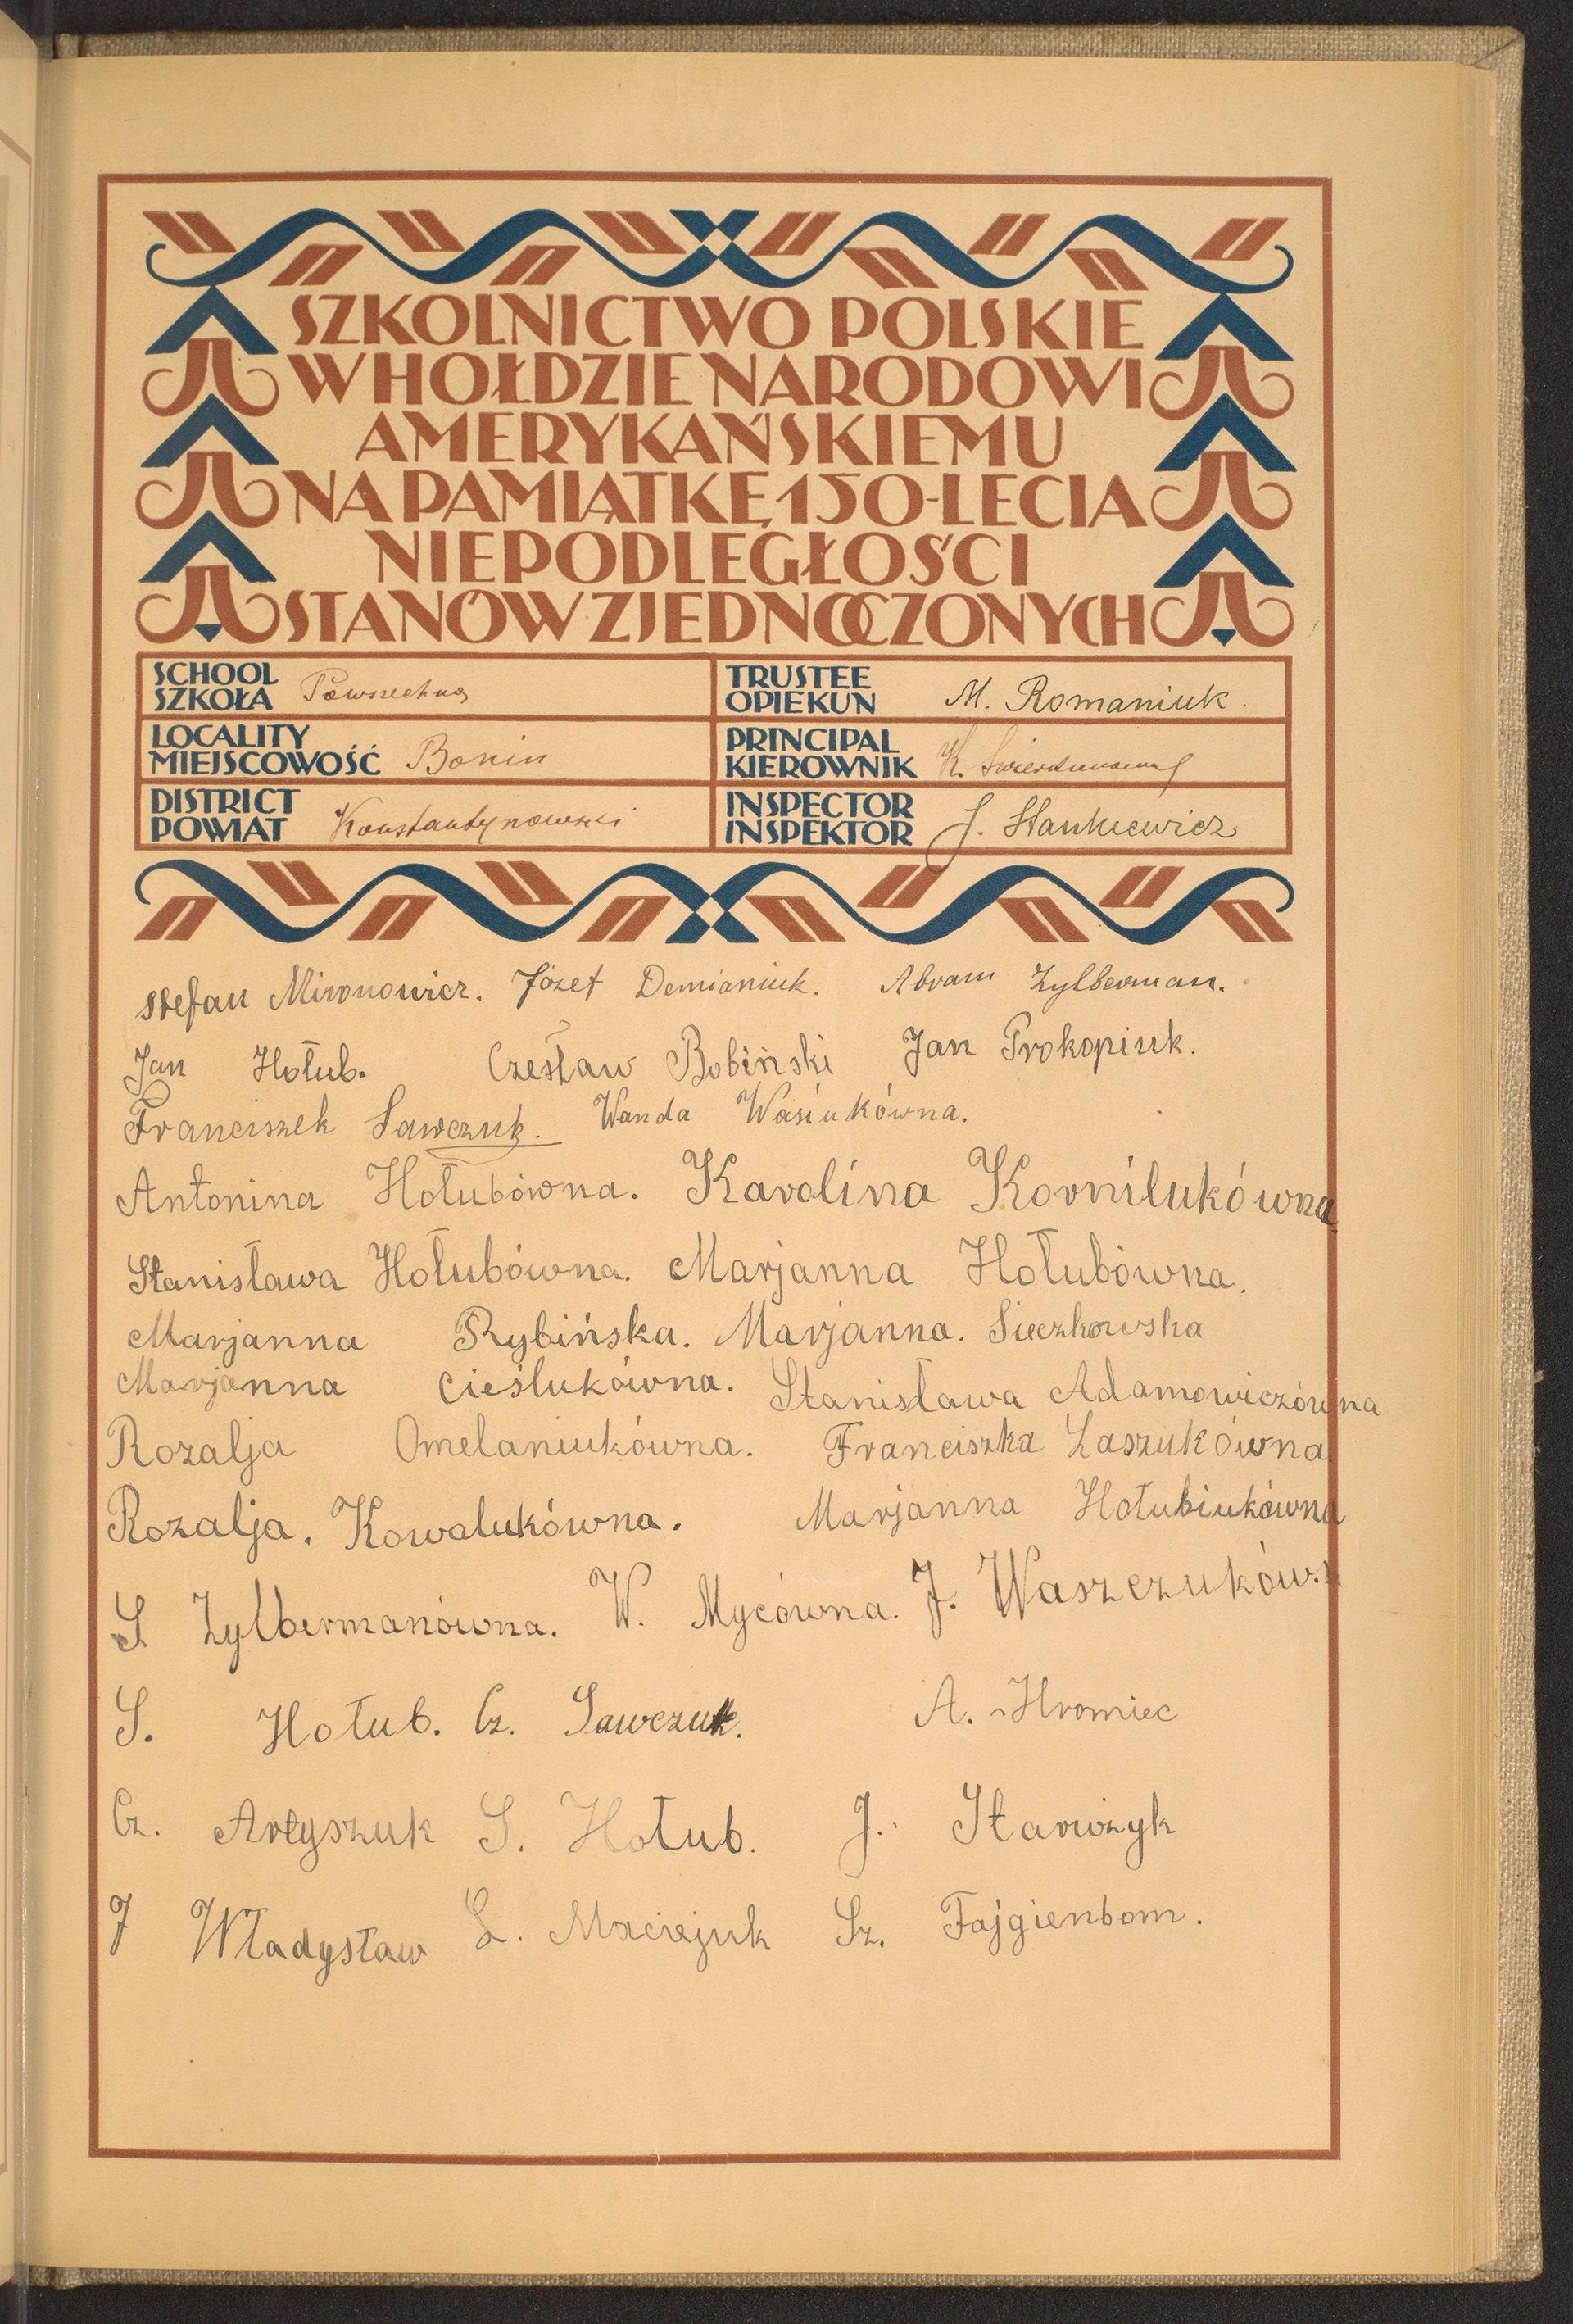 SZKOLNICTWO POLSKIE
W HOŁDZIE NARODOWI
AMERYKAŃSKIEMU
NA PAMIĄTKĘ 150-LECIA
NIEPODLEGŁOŚCI
STANÓW ZJEDNOCZONYCH
SCHOOL
SZKOŁA Powszechna
TRUSTEE
OPIEKUN M. Romaniuk.
LOCALITY
MIEJSCOWOŚĆ Bonin
PRINCIPAL
KIEROWNIK K.
DISTRICT
POWIAT Konstantynowski
INSPECTOR
INSPEKTOR J. Stankiewicz
Stefan Mironowicz. Józef Demianiuk. Abram Zylberman.
Jan Hołub. Czesław Bobiński Jan Prokopiuk.
Franciszek Sawczuk. Wanda Wasiukówna.
Antonina Hołubówna. Karolina Kornilukówna
Stanisława Hołubówna. Marjanna Hołubówna.
Marjanna Rybińska. Marjanna. Sieczkowska
Marjanna Cieślukówna. Stanisława Adamowiczówna
Rozalja Omelaniukówna. Franciszka Laszukówna
Rozalja. Kowalukówna. Marjanna Hołubiukówna
S Zylbermanówna. W. Mycówna. J. Waszczuków
S. Hołub. Cz. Sawczuk. A. Hromiec
Cz. Artyszuk S. Hołub. J. Starczyk
J Władysław L. Maciejuk Sz. Fajgienbom.